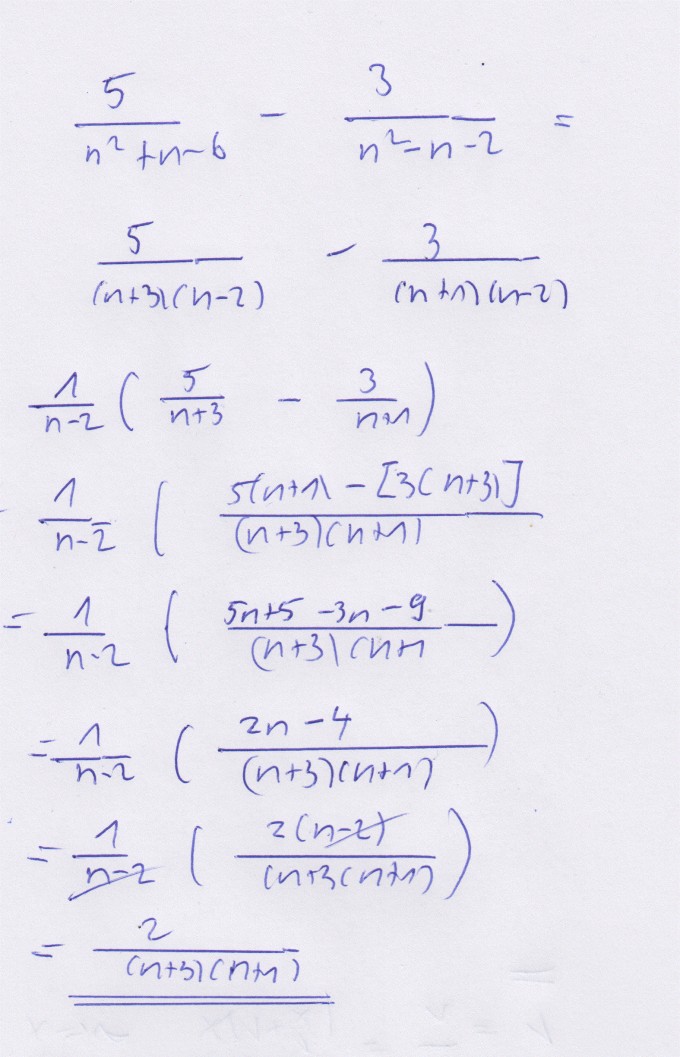 5/(n²+n-6) - 3/(n²-n-2) =
5/((n+3)(n-2)) - 3/((n+1)(n-2))
1/(n-2) ( 5/(n+3) - 3/(n+1) )
- 1/(n-2) ( (5(n+1) - [3(n+3)])/((n+3)(n+1))
= 1/(n-2) ( (5n+5-3n-9)/((n+3)(n+1) )
= 1/(n-2) ( (2n-4)/((n+3)(n+1)) )
= 1/(n-2) ( 2(n-2)/((n+3(n+1)) )
= 2/((n+3)(n+1))